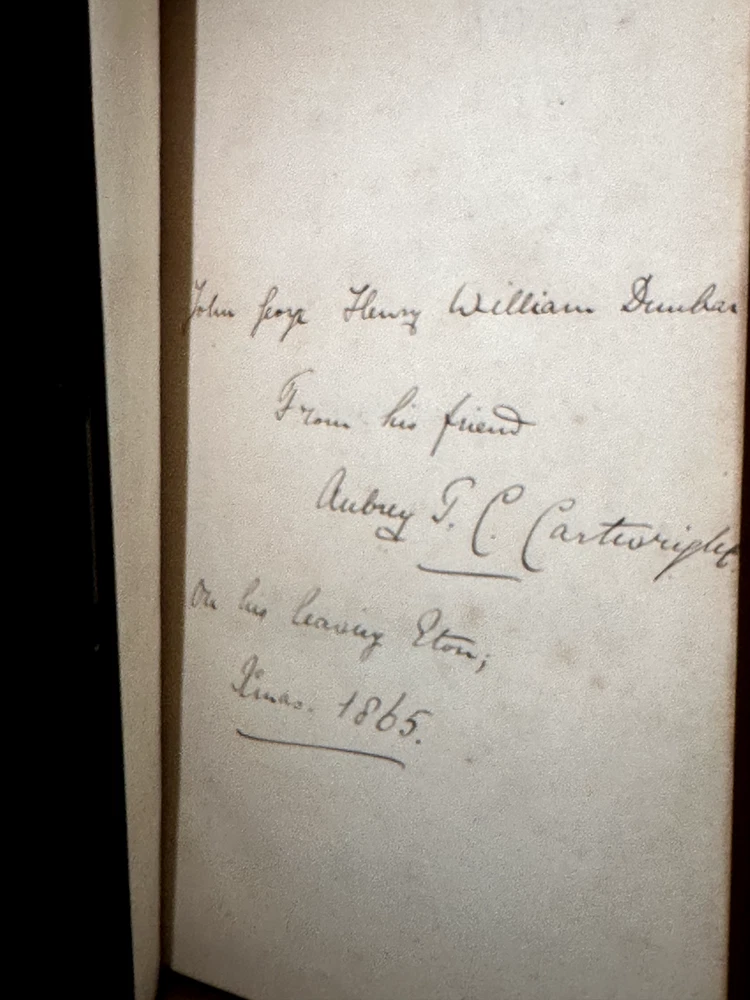 John George Henry William Dunbar
From his friend
Aubrey T. C. Cartwright.
On his leaving Eton;
Xmas. 1865.